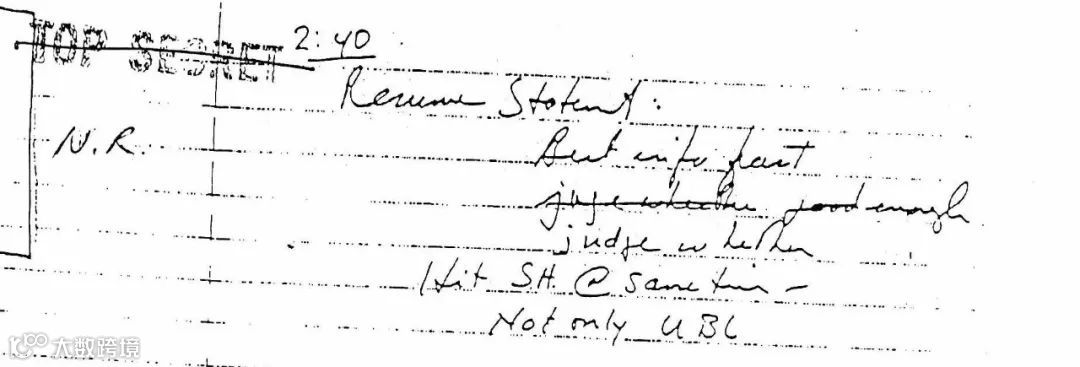 TOP SECRET 2:40
Resume Statemt:
N.R. Best info fast
judge whether good enough
judge whether
Hit S.H. @ same time -
Not only UBL
大数跨境